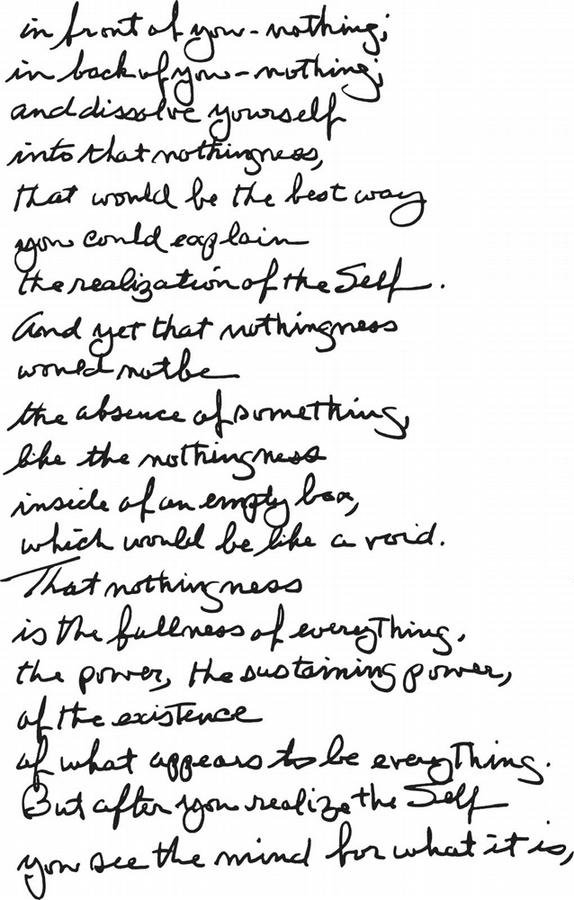 in front of you - nothing;
in back of you - nothing;
and dissolve yourself
into that nothingness,
that would be the best way
you could explain
the realization of the Self.
And yet that nothingness
would not be
the absence of something,
like the nothingness
inside of an empty box,
which would be like a void.
That nothingness
is the fullness of everything.
the power, the sustaining power,
of the existence
of what appears to be everything.
But after you realize the Self
you see the mind for what it is,